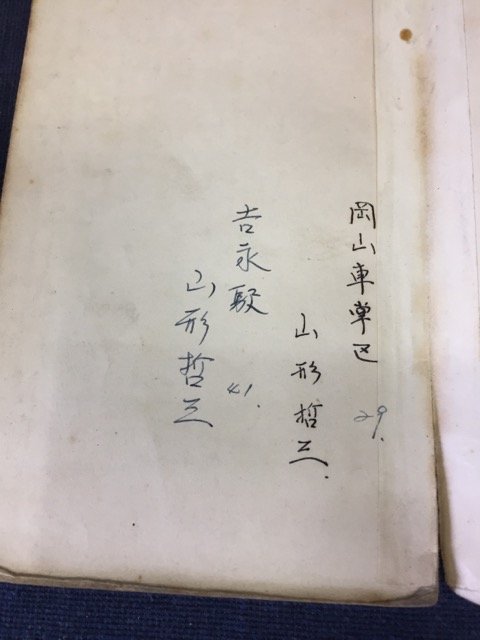 岡山車掌区 29.
山形哲三.
吉永駅 41.
山形哲三